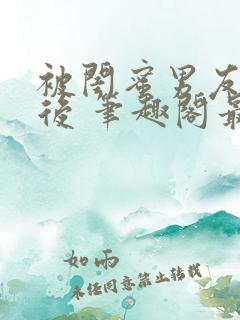 被閨蜜男友
後 筆趣閣最
如雨
未经同意禁止转载